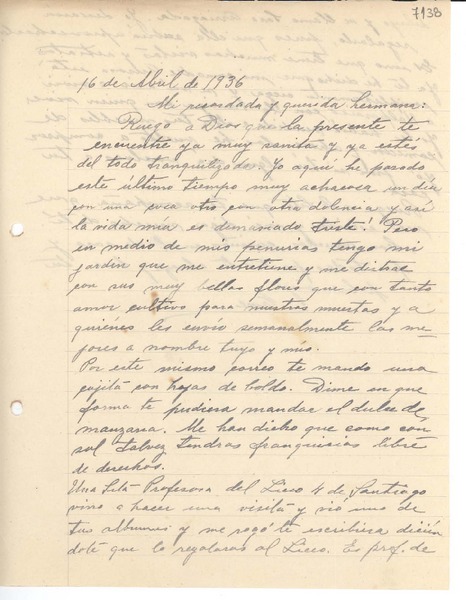 7138
16 de Abril de 1936
Mi recordada y querida hermana:
Ruego a Dios que la presente te
encuentre ya muy sanita y ya estés
del todo tranquilizada. Yo aquí he pasado
este último tiempo muy achacosa un día
con una cosa otro con otra dolencia y así
la vida mía es demasiado triste! Pero
en medio de mis penurias tengo mi
jardín que me entretiene y me distrae
con sus muy bellas flores que con tanto
amor cultivo para nuestras muertas y a
quienes les envío semanalmente las me-
jores a nombre tuyo y mío.
Por este mismo correo te mando una
cajita con hojas de boldo. Dime en que
forma te pudiera mandar el dulce de
manzana. Me han dicho que como con
sul talvez tendras franquicias libre
de derechos.
Una Srta Profesora del Liceo 4 de Santiago
vino a hacer una visita y vio uno de
tus albumes y me rogó te escribiera dicién
dote que lo regalaras al Liceo. Es prof. de